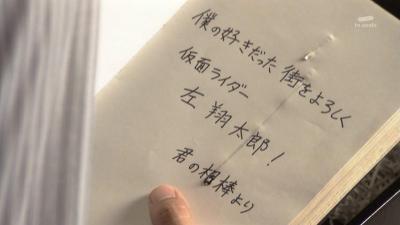 僕の好きだった街をよろしく
仮面ライダー
左 翔太郎!
君の相棒より
tv asahi